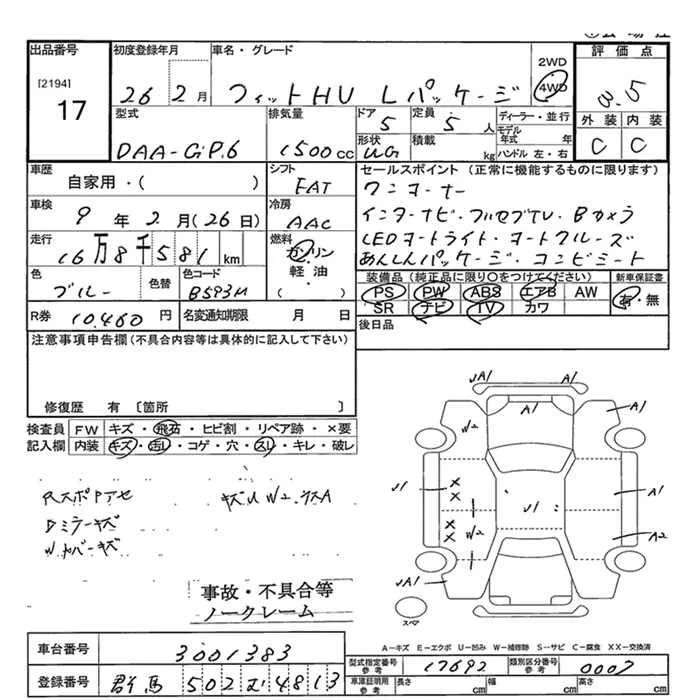 出品番号 初度登録年月 車名・グレード 評価点
[2194] 17 26 2月 フィットHV Lパッケージ 2WD 4WD 3.5
型式 排気量 ドア 定員 ディーラー・並行 外装 内装
DAA-GP6 1500cc 5 5人 モデル年式 年 C C
形状 WG 積載 kg ハンドル左・右
車歴 シフト セールスポイント(正常に機能するものに限ります)
自家用・( ) FAT ワンオーナー
車検 冷房 インターナビ・フルセグTV・Bカメラ
9年2月(26日) AAC LEDヘッドライト・オートクルーズ
走行 燃料 あんしんパッケージ・コンビシート
16万8千581km ガソリン 軽油・( )
色 色替 色コード 装備品(純正品に限り○をつけてください) 新車保証書
ブルー B593M PS PW ABS エアB AW 有・無
SR ナビ TV カワ
R券 10,460円 名変通知期限 月 日 後日品
注意事項申告欄(不具合内容等は具体的に記入して下さい)
修復歴 有〔箇所 〕
検査員 FW キズ・飛石・ヒビ割・リペア跡・×要
記入欄 内装 キズ・汚レ・コゲ・穴・スレ・キレ・破レ
RスポPアセ キズU W2、ラスA
Dミラーキズ
Wメバーキズ
UA1 A1
A1 A1
W2
U1 × × U1 A1
× × W2 A2
UA1
スペア
事故・不具合等
ノークレーム
A-キズ E-エクボ U-凹み W-補修跡 S-サビ C-腐食 XX-交換済
車台番号 3001383
型式指定番号 参考 17692 類別区分番号 参考 0007
登録番号 群馬 502 む 4813
車庫証明用 参考 長さ cm 幅 cm 高さ cm